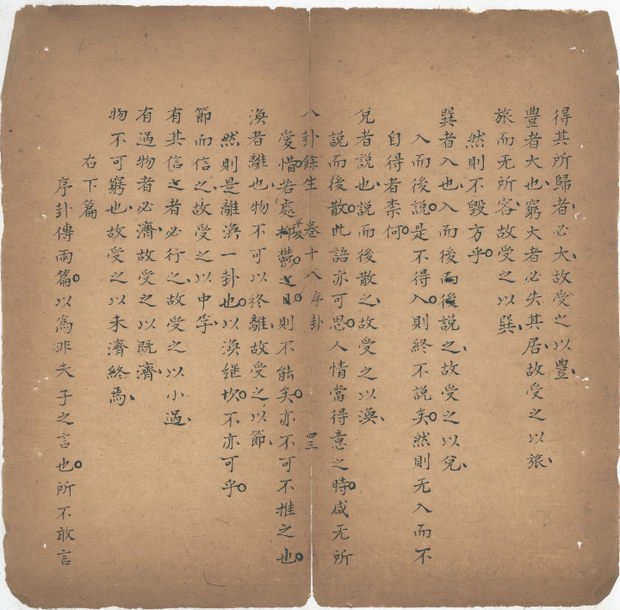 得其所歸者必大故受之以豐
豐者大也窮大者必失其居故受之以旅
旅而无所容故受之以巽
然則不毀方乎
巽者入也入而後而後說之故受之以兌
入而後說是不得入則終不說矣然則无入而不
自得者柰何
兌者說也說而後散之故受之以渙
說而後散此語亦可思人情當得意之時咸无所
八卦餘生 卷十八 序卦 四三
愛惜若處鬱之日則不能矣亦不可不推之也
渙者離也物不可以終離故受之以節
然則是離渙一卦也以渙繼坎不亦可乎
節而信之故受之以中孚
有其信者必行之故受之以小過
有過物者必濟故受之以既濟
物不可窮也故受之以未濟終焉
右下篇
序卦傳兩篇以為非夫子之言也所不敢言